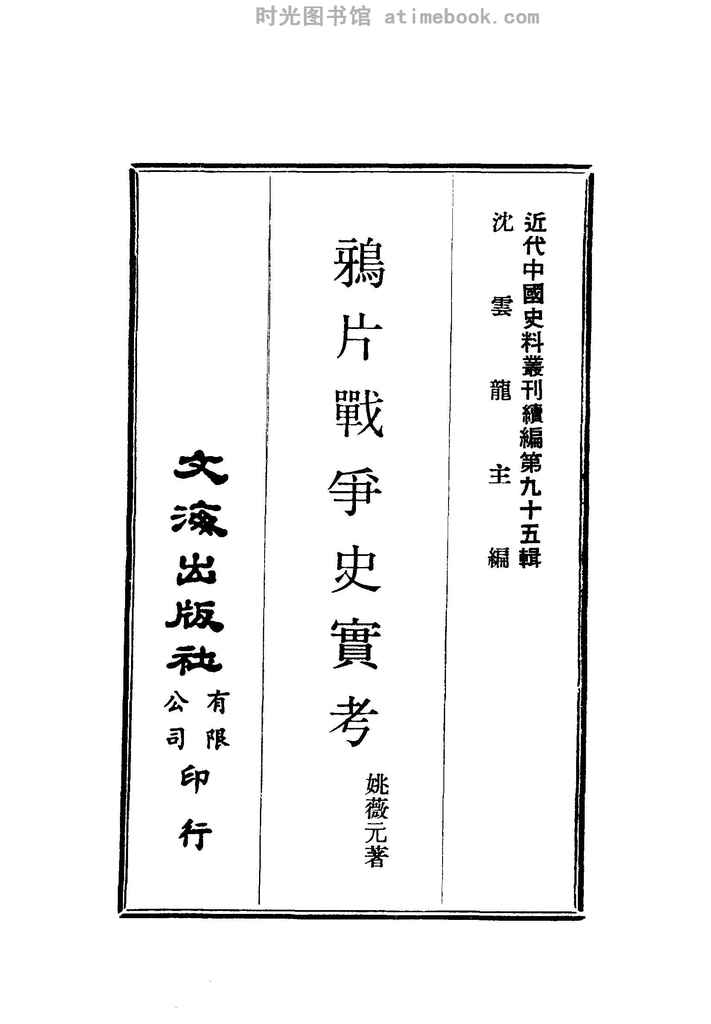 时光图书馆 atimebook.com
近代中國史料叢刊續編第九十五輯
沈雲龍主編
鴉片戰爭史實考
姚薇元著
文海出版社
有限
公司
印行